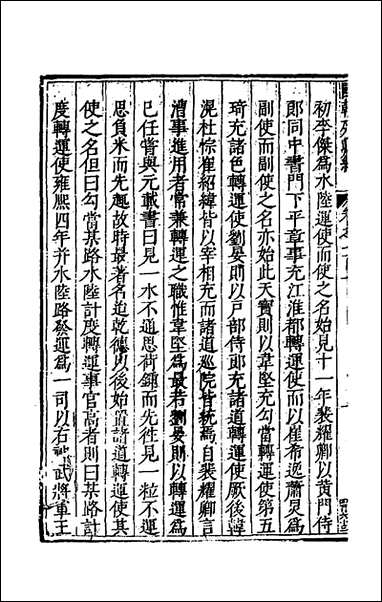 初李傑爲水陸運使而使之名始見十一年裴耀卿以黄門侍
郎同中書門下平章事充江淮都轉運使而以崔希逸蕭炅爲
副使而副使之名亦始此天寶則以韋堅充勾當轉運使第五
琦充諸色轉運使劉晏則以戸部侍郎充諸道轉運使厥後韓
滉杜悰崔紹緯皆以宰相充而諸道巡院皆統焉自裴耀卿言
漕事進用者常兼轉運之職惟韋堅爲最若劉晏則以轉運爲
己任嘗與元載書曰見一水不通思荷鍤而先徃見一粒不運
思負米而先趂故時最著名迨乾德以後始置諸道轉運使其
使之名但曰勾當某路水陸計度轉運事官高者則曰某路計
度轉運使雍熈四年并水陸路發運爲一司以右武將軍王